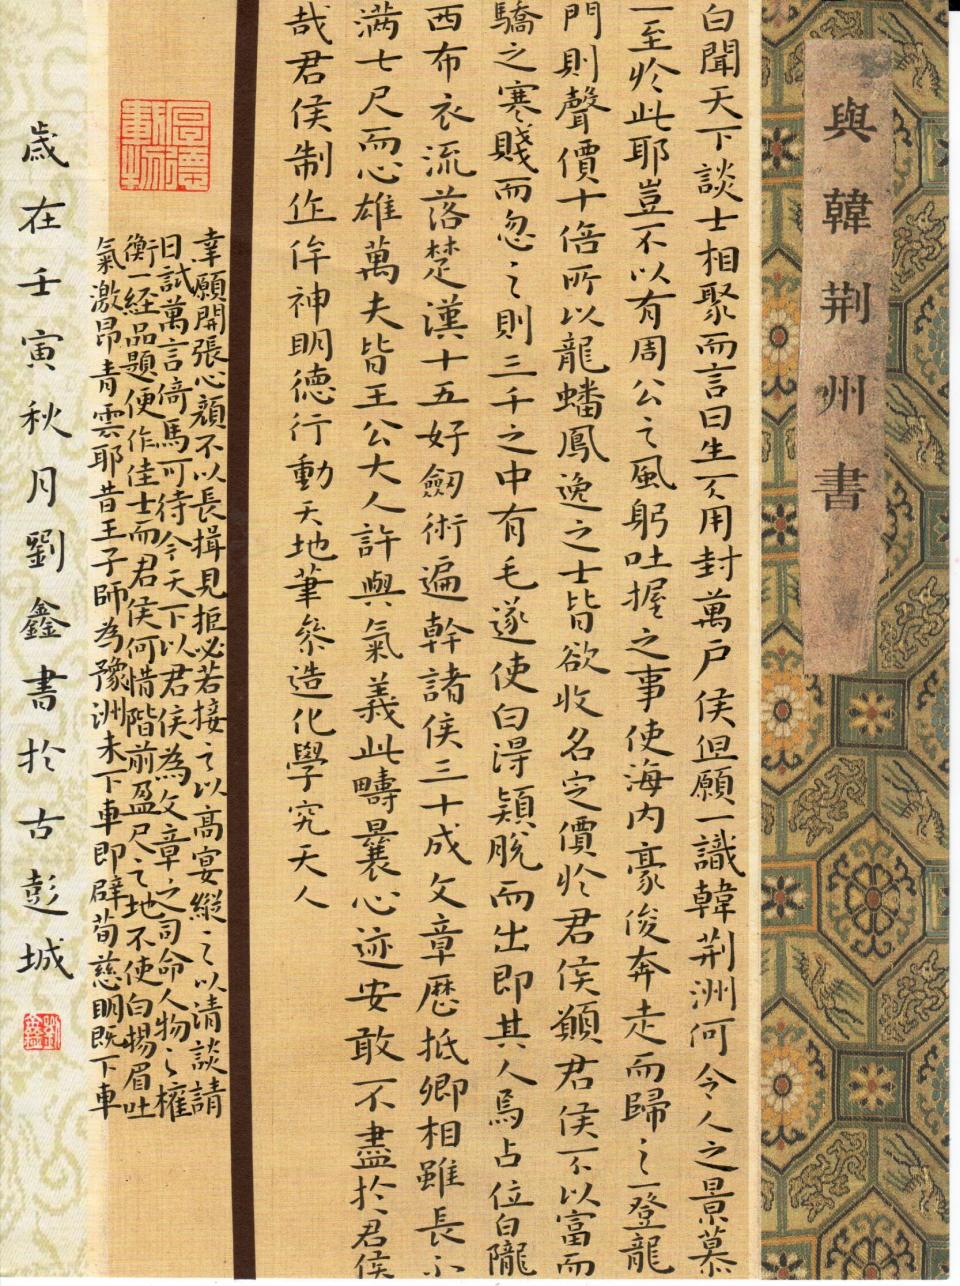 與韓荆州書
白聞天下談士相聚而言曰生不用封萬戶侯但願一識韓荆洲何令人之景慕
一至於此耶豈不以有周公之風躬吐握之事使海内豪俊奔走而歸之一登龍
門則聲價十倍所以龍蟠鳳逸之士皆欲收名定價於君侯願君侯不以富而
驕之寒賤而忽之則三千之中有毛遂使白得穎脫而出即其人焉占位白隴
西布衣流落楚漢十五好劒術遍幹諸侯三十成文章歷抵卿相雖長不
满七尺而心雄萬夫皆王公大人許與氣義此疇曩心迹安敢不盡於君侯
哉君侯制作侔神明德行動天地筆叅造化學究天人
幸願開張心顔不以長揖見拒必若接之以高宴縱之以清談請
日試萬言倚馬可待今天下以君侯為文章之司命人物之權
衡一經品題便作佳士而君侯何惜階前盈尺之地不使白揚眉吐
氣激昂青雲耶昔王子師為豫洲未下車即辟荀慈明既下車
歲在壬寅秋月劉鑫書於古彭城
劉鑫